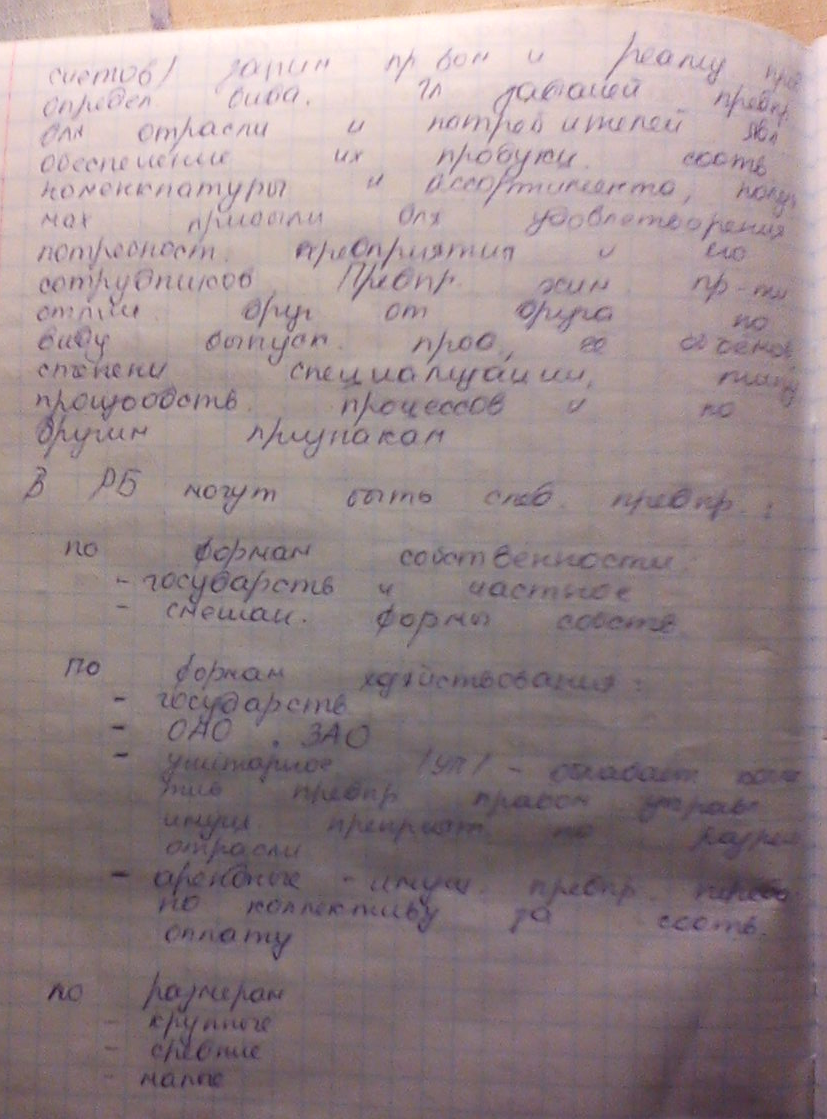 счетов) заним пр вом и реализ
определ. вида. Гл задачей предпр.
для отрасли и потребителей явл
обеспечение их продукц. соотв
номенклатуры и ассортимента, получ
мах прибыли для удовлетворения
потребност. предприятия и его
сотрудников. Предпр. хим. пр-ти
отлич. друг от друга по
виду выпуск. прод, ее объемов,
степени специализации, типу
производств. процессов и по
другим признакам
В РБ могут быть след. предпр.:
по формам собственности:
- государств и частное
- смешан. формы собств
по формам хозяйствования:
- государств
- ОАО, ЗАО
- унитарное (УП) - обладает колле
тив предпр правом управ
имущ. по
отрасли
- арендные - имущ. предпр. переда
но коллективу за соотв.
оплату
по размерам
- крупные
- средние
- малые